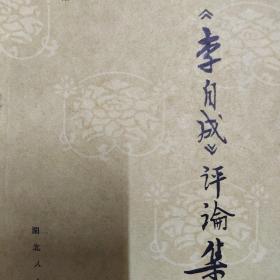 《李自成》评論集
湖北人